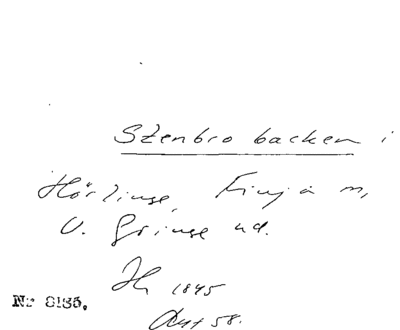 Stenbro backen i
Hörlinge, Finja sn,
V. Göinge hd.
IK 1845
Akt 58.
Nr 8135.